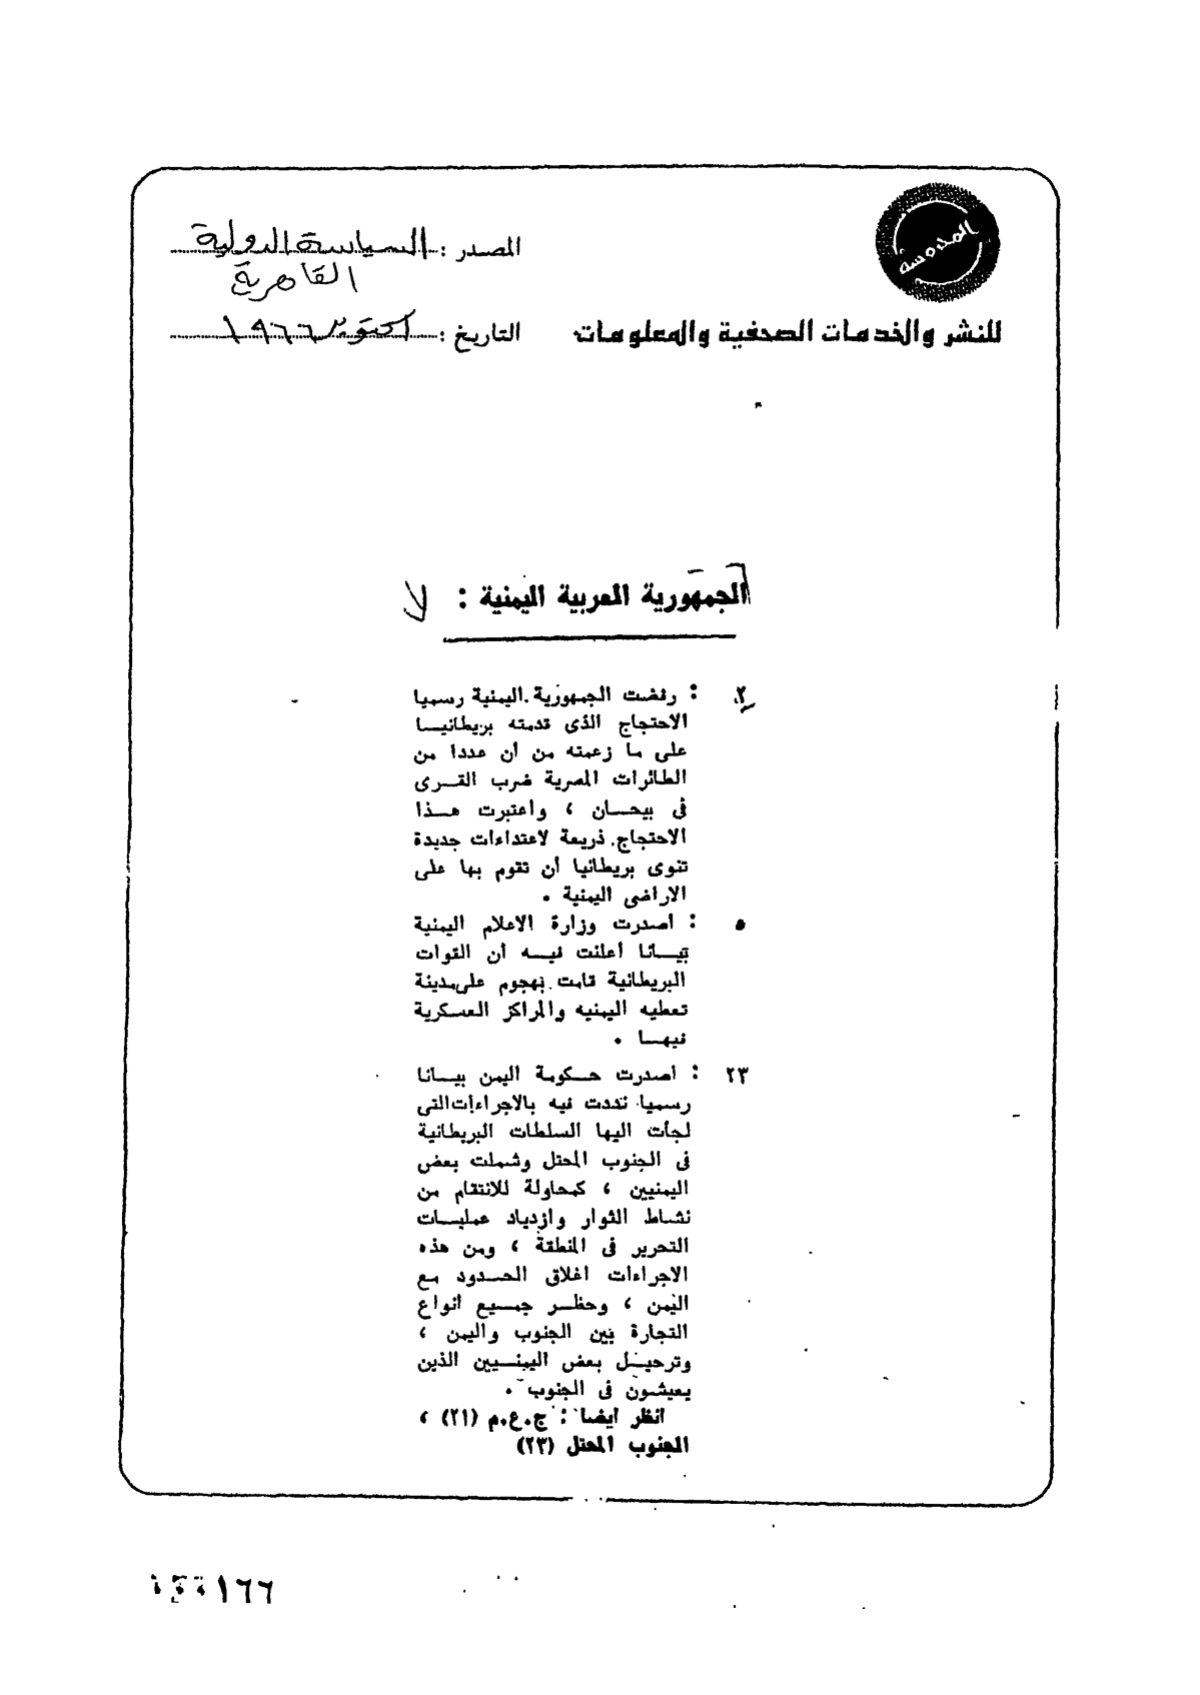 المحروسة
المصدر : السياسة الدولية
القاهرية
للنشر والخدمات الصحفية والمعلومات
التاريخ : اكتوبر ١٩٦٦
الجمهورية العربية اليمنية :
٢ : رفضت الجمهورية اليمنية رسميا
الاحتجاج الذى قدمته بريطانيـــا
على ما زعمته من أن عددا من
الطائرات المصرية ضرب القــرى
فى بيحــان ، واعتبرت هــذا
الاحتجاج ذريعة لاعتداءات جديدة
تنوى بريطانيا أن تقوم بها على
الاراضى اليمنية .
٥ : أصدرت وزارة الاعلام اليمنية
بيــانا أعلنت فيــه أن القوات
البريطانية قامت بهجوم على مدينة
تعطيه اليمنيه والمراكز العسكرية
فيهــا .
٢٣ : أصدرت حــكومة اليمن بيــانا
رسميا نددت فيه بالاجراءات التى
لجأت اليها السلطات البريطانية
فى الجنوب المحتل وشملت بعض
اليمنيين ، كمحاولة للانتقام من
نشاط الثوار وازدياد عمليــات
التحرير فى المنطقة ، ومن هذه
الاجراءات اغلاق الحــدود مع
اليمن ، وحظــر جميــع انواع
التجارة بين الجنوب واليمن ،
وترحيــل بعض اليمنــيين الذين
يعيشون فى الجنوب .
انظر ايضا : ج.ع.م (٢١) ،
الجنوب المحتل (٢٣)